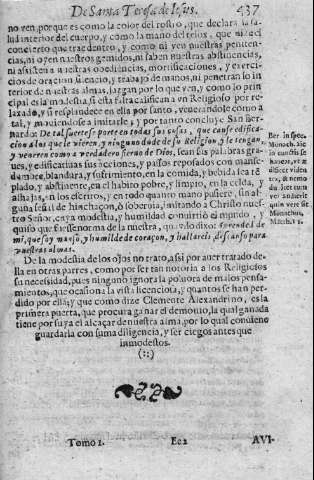 De Santa Teresa de Iesus.
437
no ven, porque es como la color del rostro, que declara la sa-
lud interior del cuerpo, y como la mano del relox, que dize el
concierto que trae dentro, y como ni ven nuestras peniten-
cias, ni oyen nuestros gemidos, ni saben nuestras abstinencias,
ni assisten a nuestras obediencias, mortificaciones, y exerci-
cios de oracion, silencio, y trabajo de manos, ni penetran lo in-
terior de nuestras almas, juzgan por lo que ven, y como lo prin-
cipal es la modestia, si esta falta califican a vn Religioso por re-
laxado, y si resplandece en ella por santo, venerandole como a
tal, y mouiendose a imitarle; y por tanto concluye San Ber-
nardo: De tal suerte se porte en todas sus cosas, que cause edifica-
cion a los que le vieren, y ninguno dude de su Religion, y le tengan,
y veneren como a verdadero sieruo de Dios, sean sus palabras gra-
ues, y edificatiuas sus acciones, y passos reposados con manse-
dumbre, blandura, y sufrimiento, en la comida, y bebida sea tē
plado, y abstinente, en el habito pobre, y limpio, en la celda, y
alhajas, ni en los escritos, y en todo quanto mano pusiere, sin al-
guna señal de hinchaçon, ò soberuia, imitando a Christo nues-
tro Señor, cuya modestia, y humildad conuirtiò el mundo, y
quiso que fuesse norma de la nuestra, quando dixo: Aprended de
mi, que soy manso, y humilde de coraçon, y hallareis descanso para
vuestras almas.
Ber. in spec.
Monach. sic
in cunctis se
habeat, vt æ
dificet viden
tes, & nemo
dubitet cum
vel audierit
quin verè sit
Monachus,
Matth. 11.
De la modestia de los ojos no trato, assi por auer tratado de-
lla en otras partes, como por ser tan notoria a los Religiosos
su necessidad, pues ninguno ignora la poluora de malos pensa-
mientos, que ocasiona la vista licenciosa, y quantos se han per-
dido por ella; y que como dize Clemente Alexandrino, es la
primera puerta, que procura ganar el demonio, la qual ganada
tiene por suya el alcaçar de nuestra alma, por lo qual conuiene
guardarla con suma diligencia, y ser ciegos antes que
inmodestos.
(::)
Tomo 1.
Ee2
AVI-